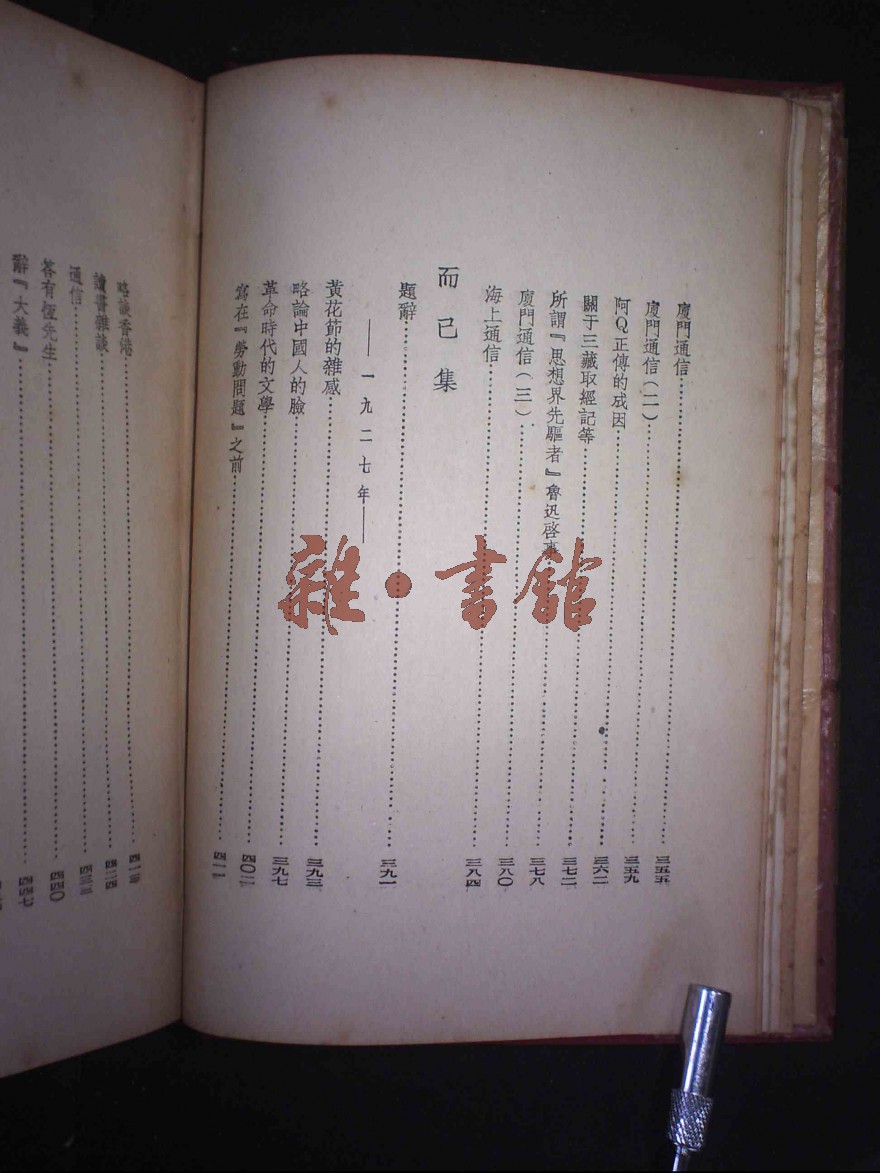 廈門通信……三五五
廈門通信(二)……三五九
阿Q正傳的成因……三六二
關于三藏取經記等……三七二
所謂『思想界先驅者』魯迅啓事……三七八
廈門通信(三)……三八〇
海上通信……三八四
而已集
題辭……三九一
——一九二七年——
黃花節的雜感……三九三
略論中國人的臉……三九七
革命時代的文學……四〇二
寫在『勞動問題』之前……四一一
略談香港……
讀書雜談……四二四
通信……四三三
答有恆先生……四四〇
辭『大義』……四四七
雜·書館